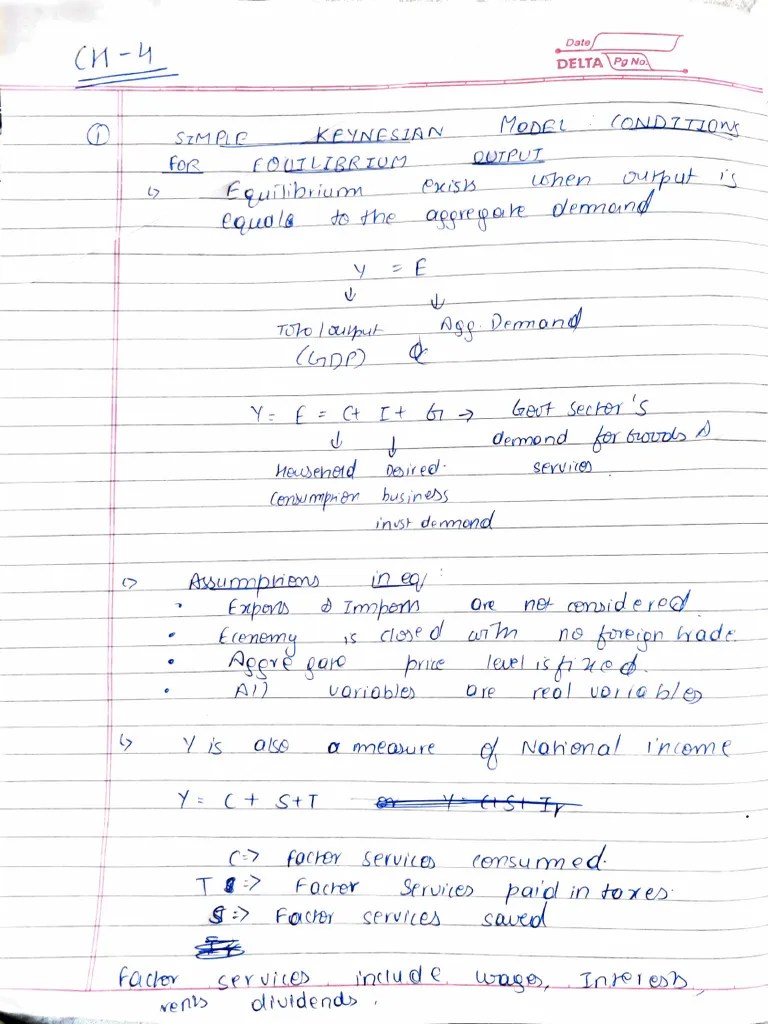 CH-4
Date
DELTA Pg No.
① SIMPLE KEYNESIAN MODEL : CONDITIONS
FOR EQUILIBRIUM OUTPUT
↳ Equilibrium exists when output is
equals to the aggregate demand
Y = E
↓ ↓
Total output Agg. Demand
(GDP)
Y = E = C+ I+ G → Govt sector's
↓ ↓ demand for Goods &
Household Desired services
consumption business
invst demand
↳ Assumptions in eq :
• Exports & Imports are not considered
• Economy is closed with no foreign trade.
• Aggregate price level is fixed.
• All variables are real variables
↳ Y is also a measure of National income
Y = C + S+T or Y = C+S+ Ir
C => factor services consumed.
T => Factor Services paid in taxes.
S => Factor services saved
factor services include wages, Interests,
rents dividends.